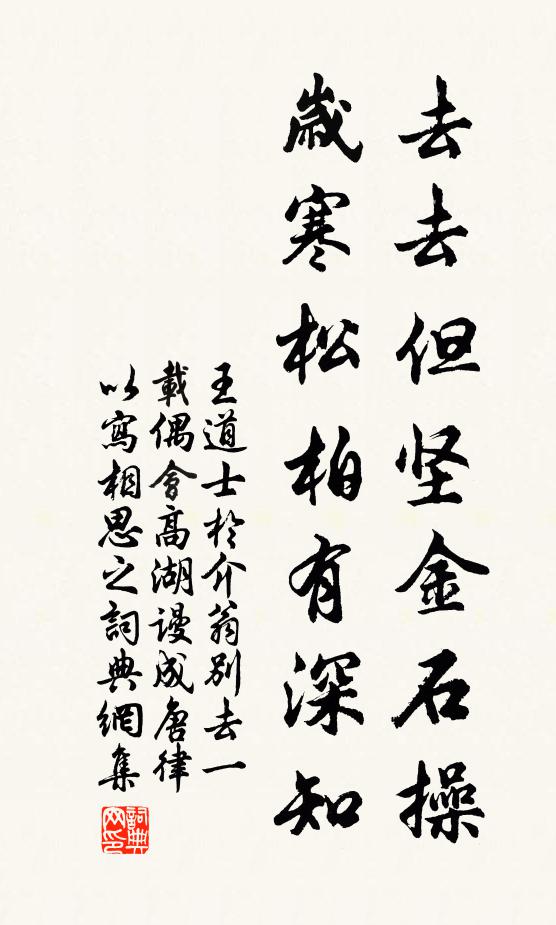 去去但坚金石操
歲寒松柏有深知
王道士於介翁別去一
載偶會高湖謾成唐律
以寫相思之詞典網集
詞典網印